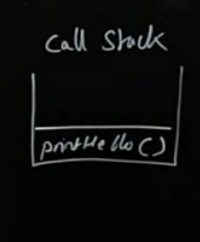 Call Stack
printHello()